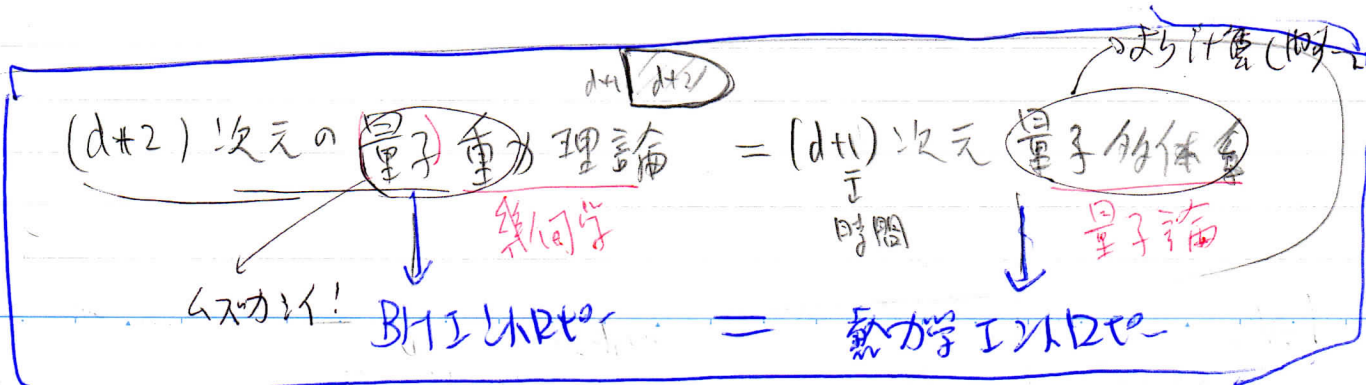 d+1 d+2
よち計算
(d+2)次元の量子重力理論 = (d+1)次元量子多体系
幾何学 時間 量子論
ムズカシイ!
BHエントロピー = 熱力学エントロピー